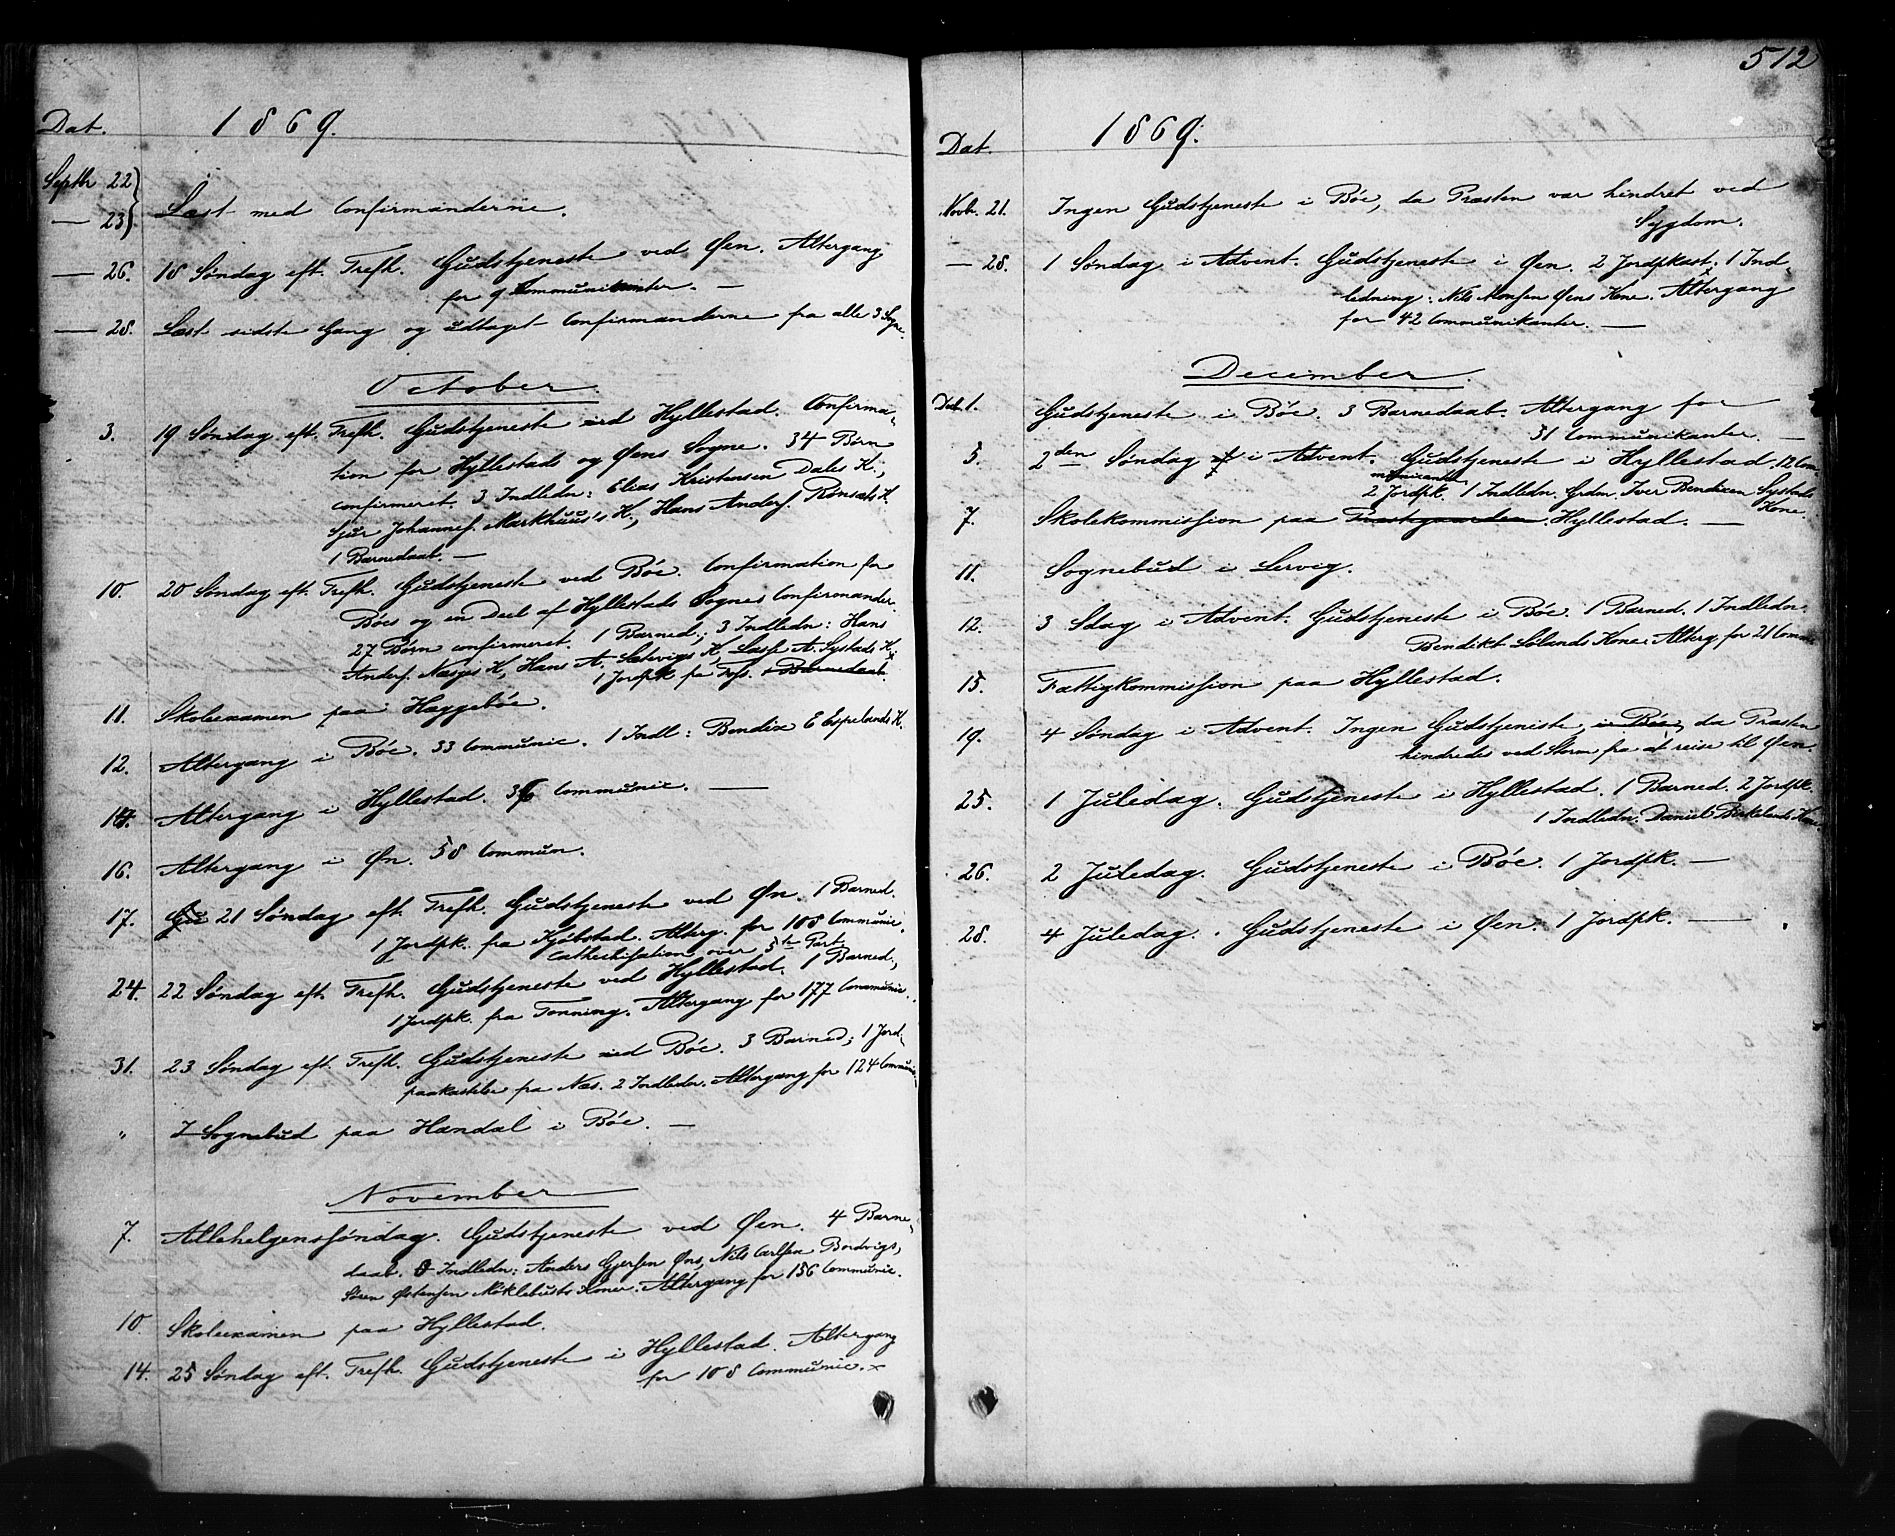 Dat. 1869.
Septbr 22
— 23 Læst med Confirmanderne.
— 26. 18 Søndag eft. Trefh. Gudstjeneste ved Øen. Altergang
for 9 Communikanter. —
— 28. Læst sidste Gang og udtaget Confirmanderne fra alle 3 Sogne.
October
3. 19 Søndag eft. Trefh. Gudstjeneste ved Hyllestad. Confirma-
tion for Hyllestads og Øens Sogne. 34 Børn
confirmeret. 3 Indledn: Elias Kristensen Dales K.,
Sjur Johannes. Markhuus's K., Hans Anders. Rønsæts K.
1 Barnedaab. —
10. 20 Søndag eft. Trefh. Gudstjeneste ved Böe. Confirmation for
Böes og en Deel af Hyllestads Sognes Confirmander.
27 Børn confirmeret. 1 Barned.; 3 Indledn: Hans
Anders. Næsjes K, Hans A. Sætevigs K, Lasse A. Systads K.
1 Jordpk fra Barnedaab.
11. Skoleexamen paa Hæggebøe.
12. Altergang i Böe. 33 Communic. 1 Indl: Bendix E Espelands K.
14. Altergang i Hyllestad. 36 Communic. —
16. Altergang i Øn. 58 Commun.
17. Gu 21 Søndag eft. Trefh. Gudstjeneste ved Øn. 1 Barned.
1 Jordpk. fra Kjøbstad. Alterg. for 108 Communic.
Cathechisation over 5te Part.
24. 22 Søndag eft. Trefh. Gudstjeneste ved Hyllestad. 1 Barned.,
1 Jordpk. fra Tonning. Altergang for 177 Communic.
31. 23 Søndag eft. Trefh. Gudstjeneste ved Böe. 3 Barned, 1 Jord-
paakastelse fra Næs. 2 Indledn. Altergang for 124 Communic.
" I Sognebud paa Hændal i Böe. —
November
7. Allehelgenssøndag. Gudstjeneste ved Øen. 4 Barne-
daab. Indledn: Anders Gjersen Øns, Nils Carlsen Bordvigs,
Søren Østensen Møklebusts Koner. Altergang for 156 Communic.
10. Skoleexamen paa Hyllestad.
14. 25 Søndag eft. Trefh. Gudstjeneste i Hyllestad. Altergang
for 108 Communic.
512
Dat. 1869.
Novbr. 21. Ingen Gudstjeneste i Böe, da Præsten var hindret ved
Sygdom.
— 28. 1 Søndag i Advent. Gudstjeneste i Øen. 2 Jordpkast. 1 Ind-
ledning: Nils Monsen Øens Kone. Altergang
for 42 Communikanter. —
December.
Debr 1. Gudstjeneste i Böe. 3 Barnedaab. Altergang for
31 Communikanter. —
5. 2den Søndag i Advent. Gudstjeneste i Hyllestad. 12 Com-
munikanter
2 Jordpk. 1 Indledn. Grdm. Iver Bendixen Systads
Kone.
7. Skolekommission paa Præstegaarden Hyllestad. —
11. Sognebud i Lervig.
12. 3 Sdag i Advent. Gudstjeneste i Böe. 1 Barned. 1 Indledn.
Bendikt Lølands Kone. Alterg for 21 Comm
15. Fattigkommission paa Hyllestad.
19. 4 Søndag i Advent. Ingen Gudstjeneste i Böe, da Præsten
hindredes ved Storm fra at reise til Øen.
25. 1 Juledag. Gudstjeneste i Hyllestad. 1 Barned. 2 Jordpk.
1 Indledn. Daniel Birkelands Kone.
26. 2 Juledag. Gudstjeneste i Böe. 1 Jordpk. —
28. 4 Juledag. Gudstjeneste i Øen. 1 Jordpk. —